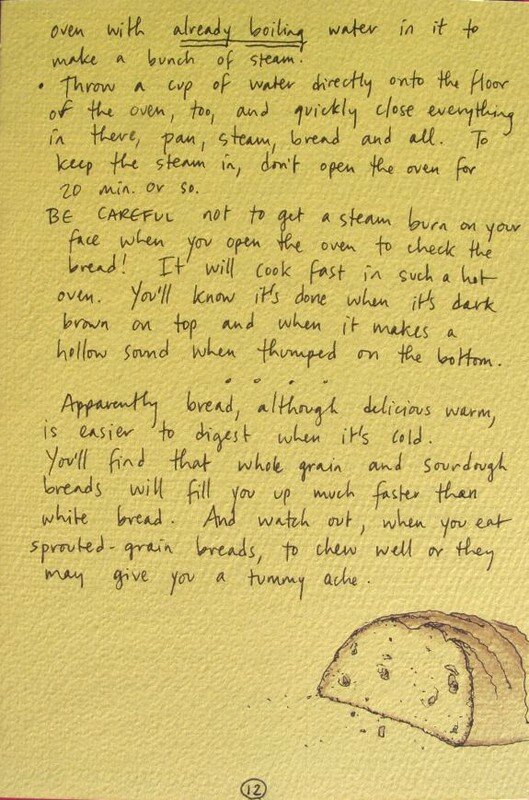 oven with already boiling water in it to
make a bunch of steam.
• Throw a cup of water directly onto the floor
of the oven, too, and quickly close everything
in there, pan, steam, bread and all. To
keep the steam in, don't open the oven for
20 min. or so.
BE CAREFUL not to get a steam burn on your
face when you open the oven to check the
bread! It will cook fast in such a hot
oven. You'll know it's done when it's dark
brown on top and when it makes a
hollow sound when thumped on the bottom.
Apparently bread, although delicious warm,
is easier to digest when it's cold.
You'll find that whole grain and sourdough
breads will fill you up much faster than
white bread. And watch out, when you eat
sprouted-grain breads, to chew well or they
may give you a tummy ache.
12